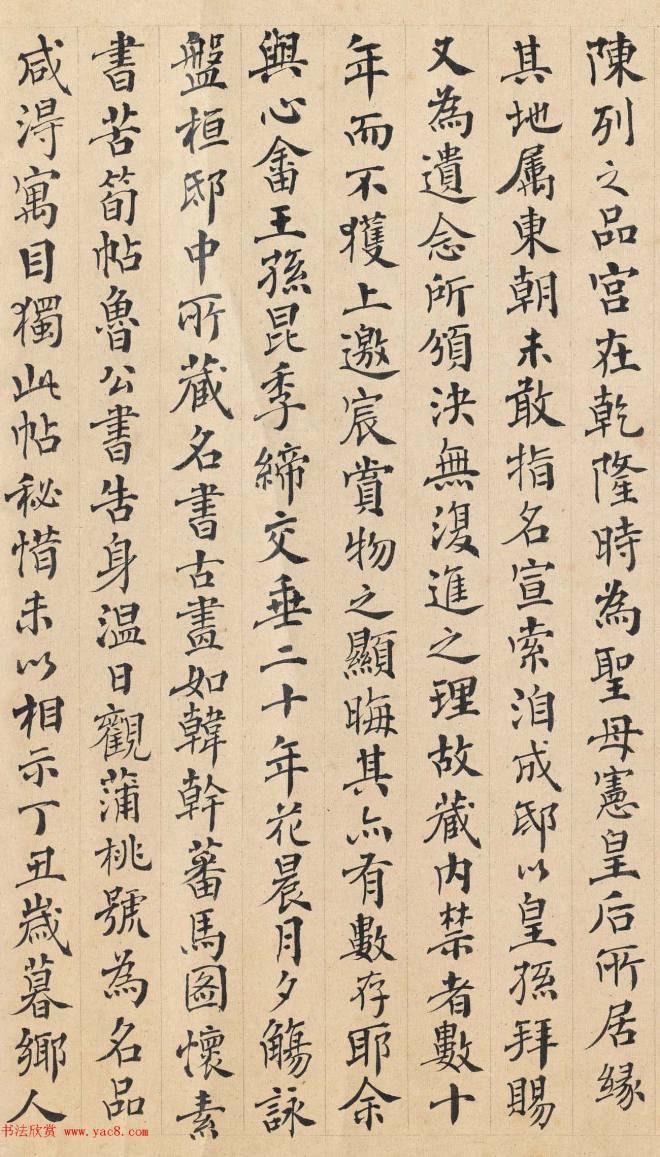 陳列之品宮在乾隆時為聖母憲皇后所居緣
其地属東朝未敢指名宣索洎成邸以皇孫拜賜
又為遺念所頒決無復進之理故藏内禁者數十
年而不獲上邀宸賞物之顯晦其亦有數存耶余
與心畬王孫昆季締交垂二十年花晨月夕觴詠
盤桓邸中所藏名書古畫如韓幹蕃馬圖懷素
書苦筍帖魯公書告身温日觀蒲桃號為名品
咸得寓目獨此帖秘惜未以相示丁丑歲暮鄉人
书法欣赏 www.yac8.com